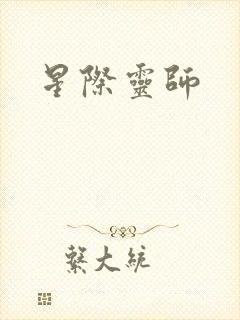 星際靈師
繫大統